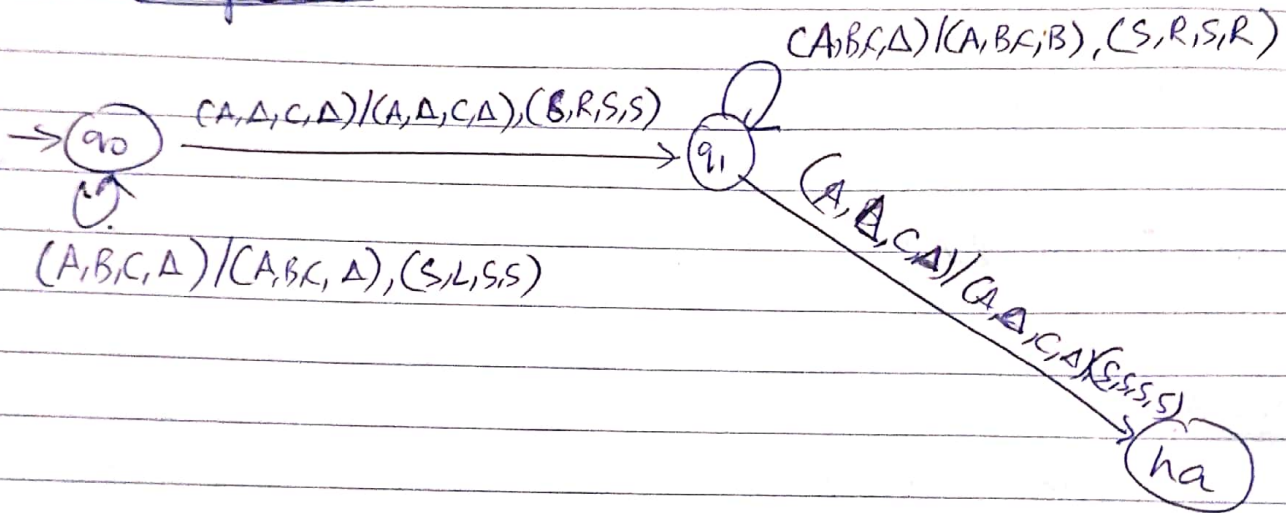 (A,B,C,Δ)/(A,B,C,B),(S,R,S,R)
(A,Δ,C,Δ)/(A,Δ,C,Δ),(S,R,S,S)
q0
q1
(A,Δ,C,Δ)/(A,Δ,C,Δ)(S,S,S,S)
(A,B,C,Δ)/(A,B,C,Δ),(S,L,S,S)
ha